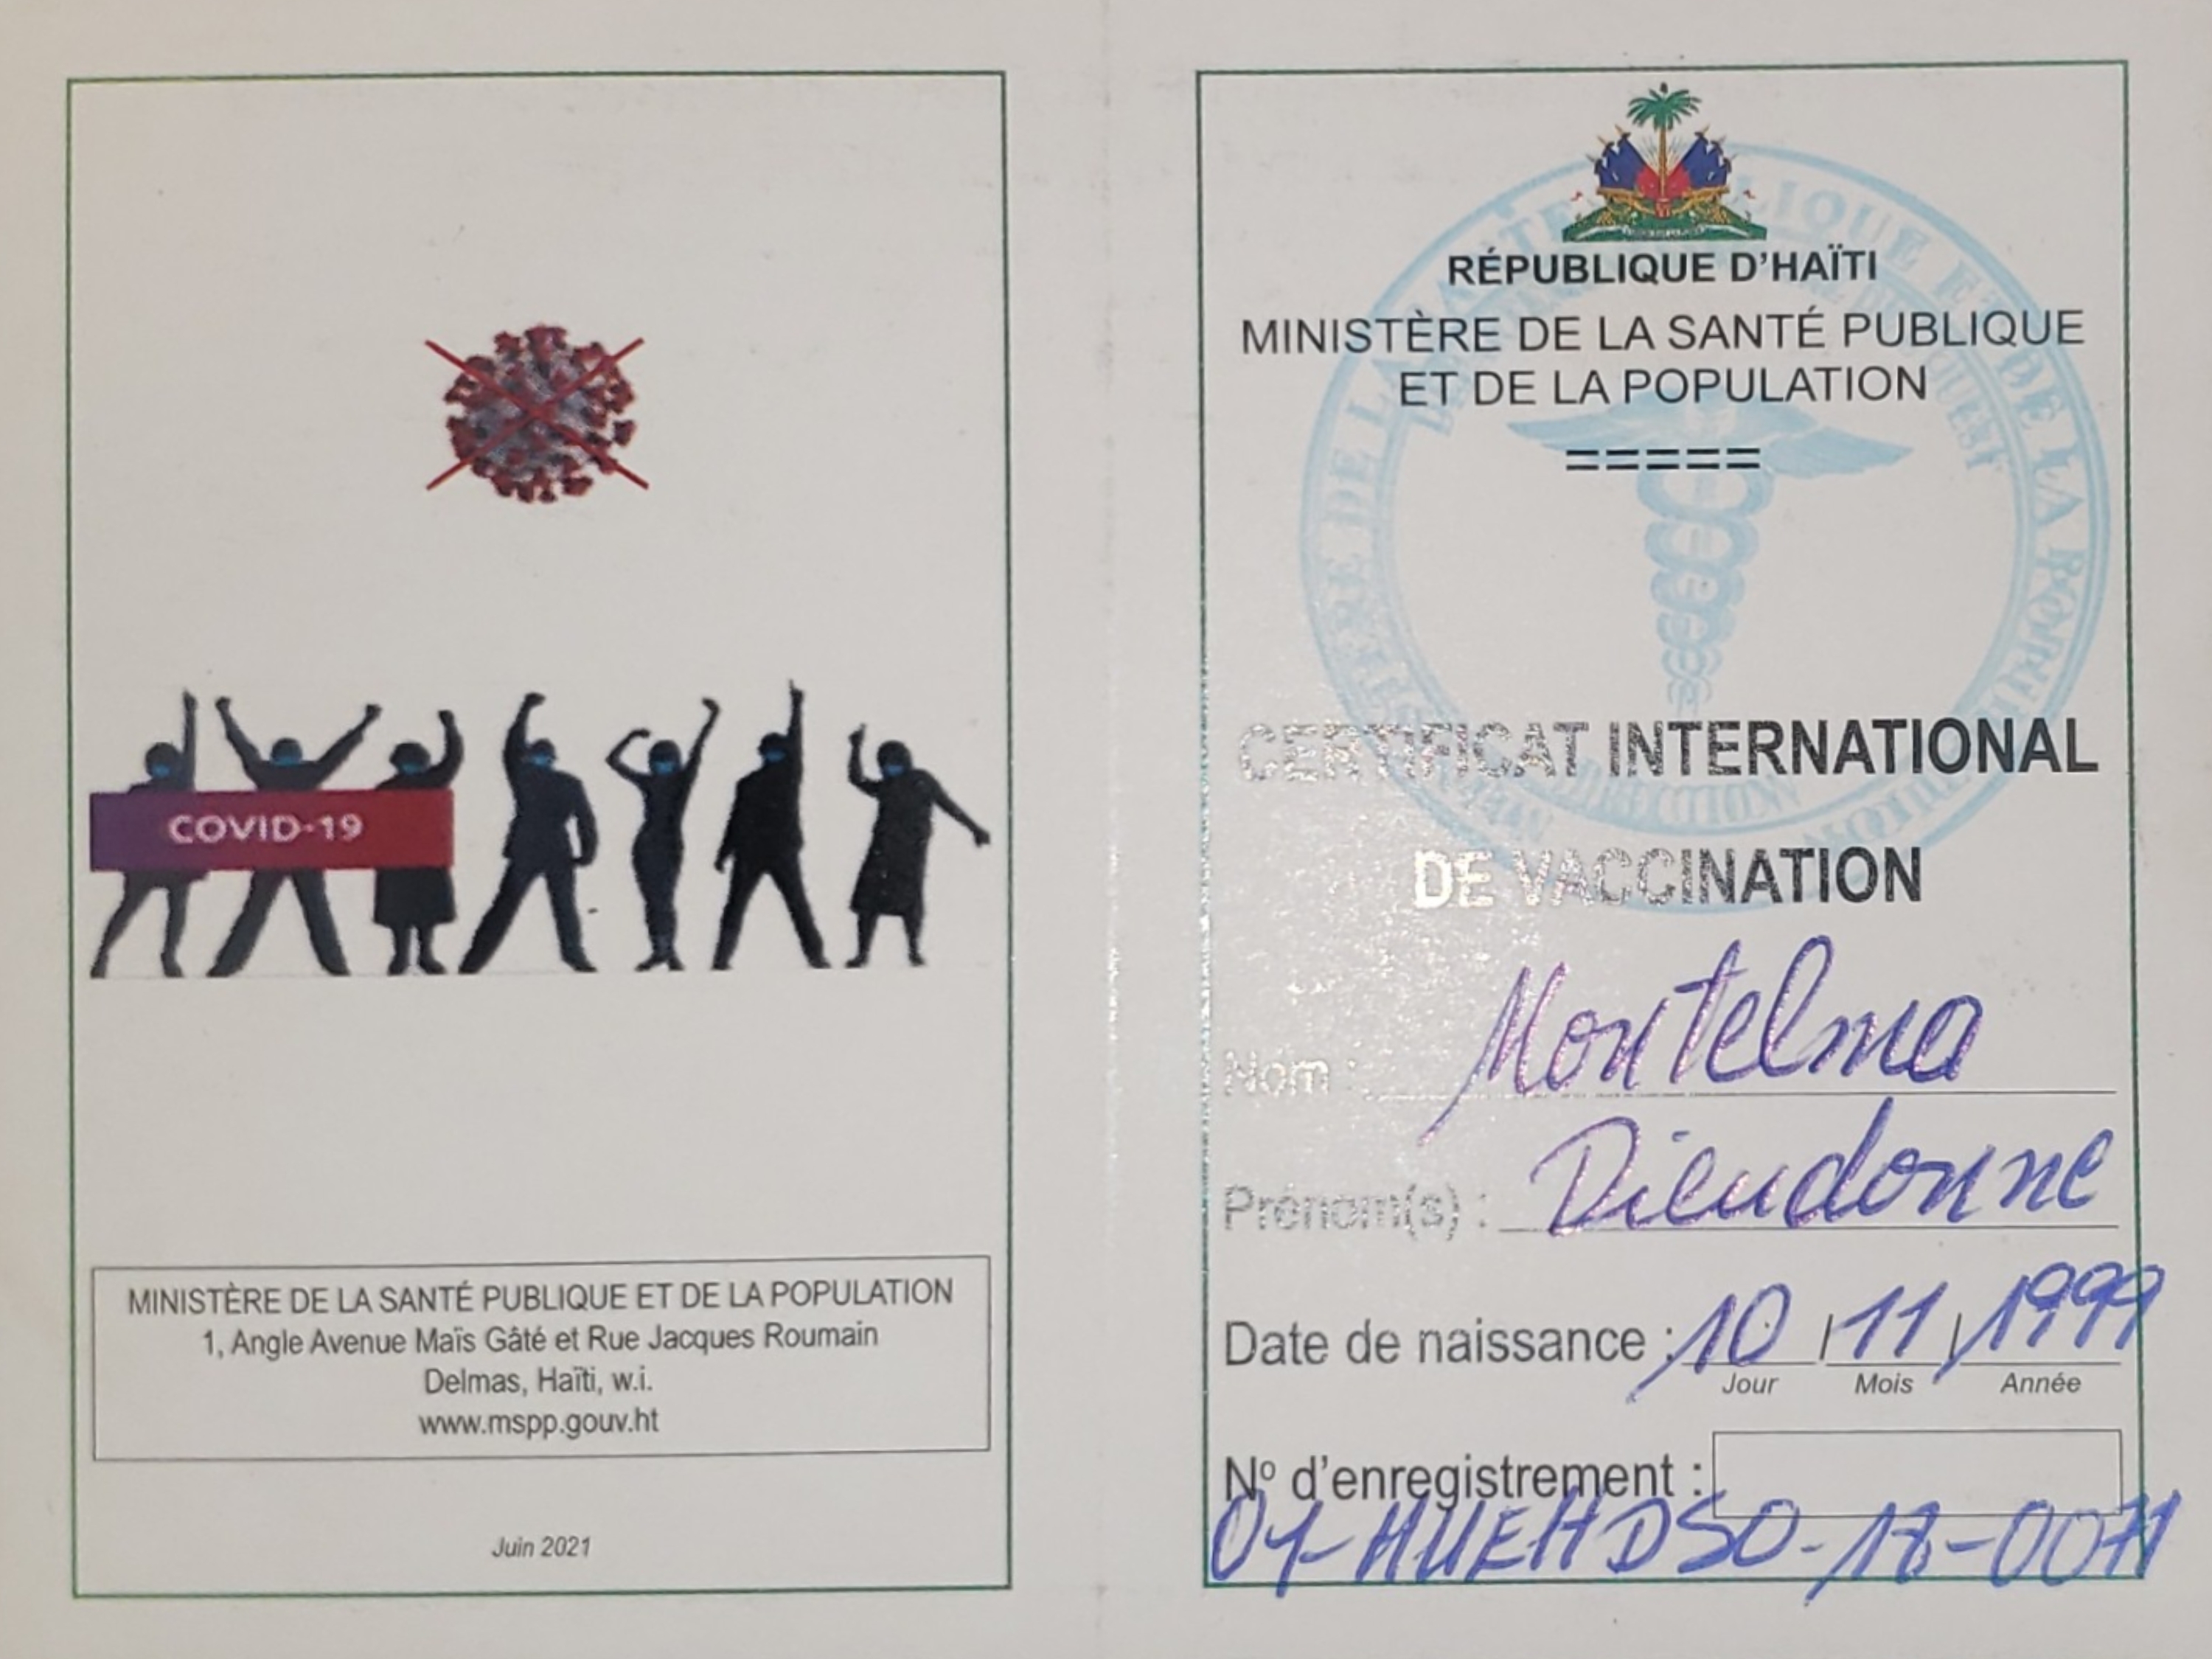 COVID-19
MINISTÈRE DE LA SANTÉ PUBLIQUE ET DE LA POPULATION
1, Angle Avenue Maïs Gâté et Rue Jacques Roumain
Delmas, Haïti, w.i.
www.mspp.gouv.ht
Juin 2021
RÉPUBLIQUE D'HAÏTI
MINISTÈRE DE LA SANTÉ PUBLIQUE
ET DE LA POPULATION
=====
CERTIFICAT INTERNATIONAL
DE VACCINATION
Nom : Montelma
Prénom(s) : Dieudonne
Date de naissance : 10 / 11 / 1999
Jour Mois Année
Nº d'enregistrement :